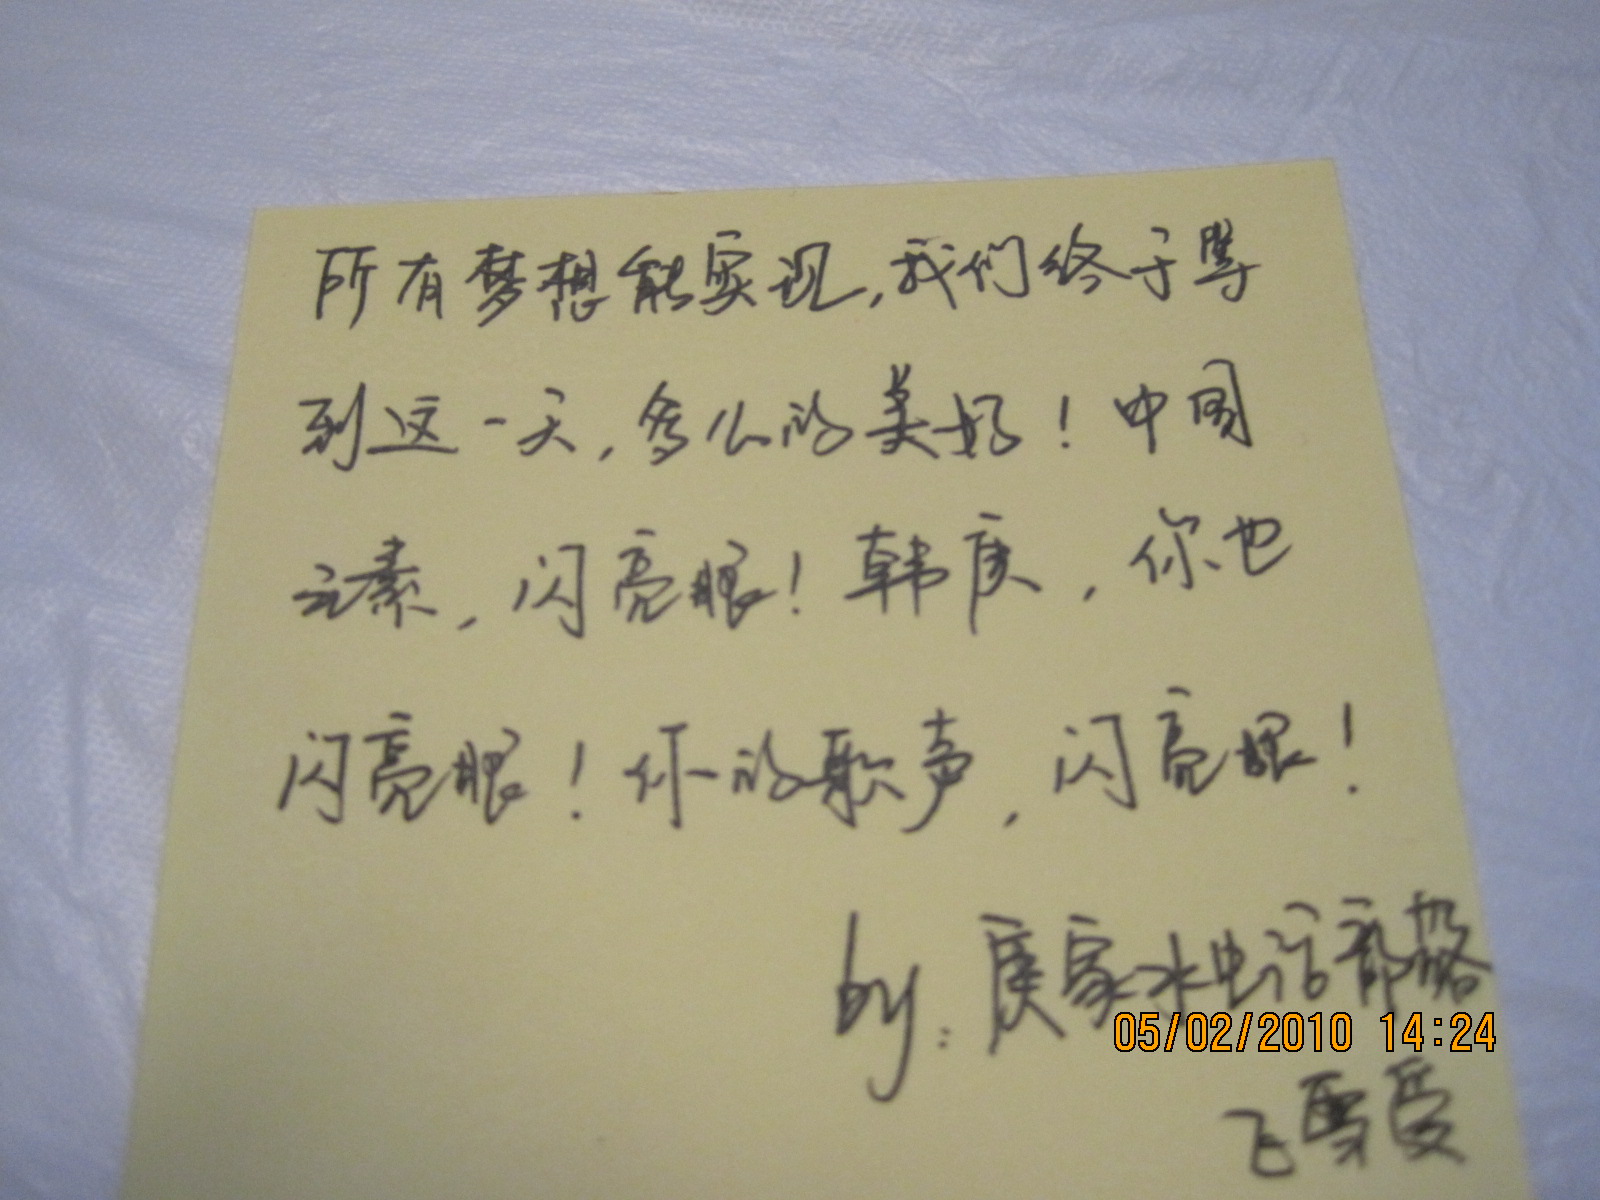 所有梦想能实现,我们终于等
到这一天,多么的美好!中国
元素,闪亮眼!韩庚,你也
闪亮眼!你的歌声,闪亮眼!
by:庚家 电话部
05/02/2010 14:24
飞雪